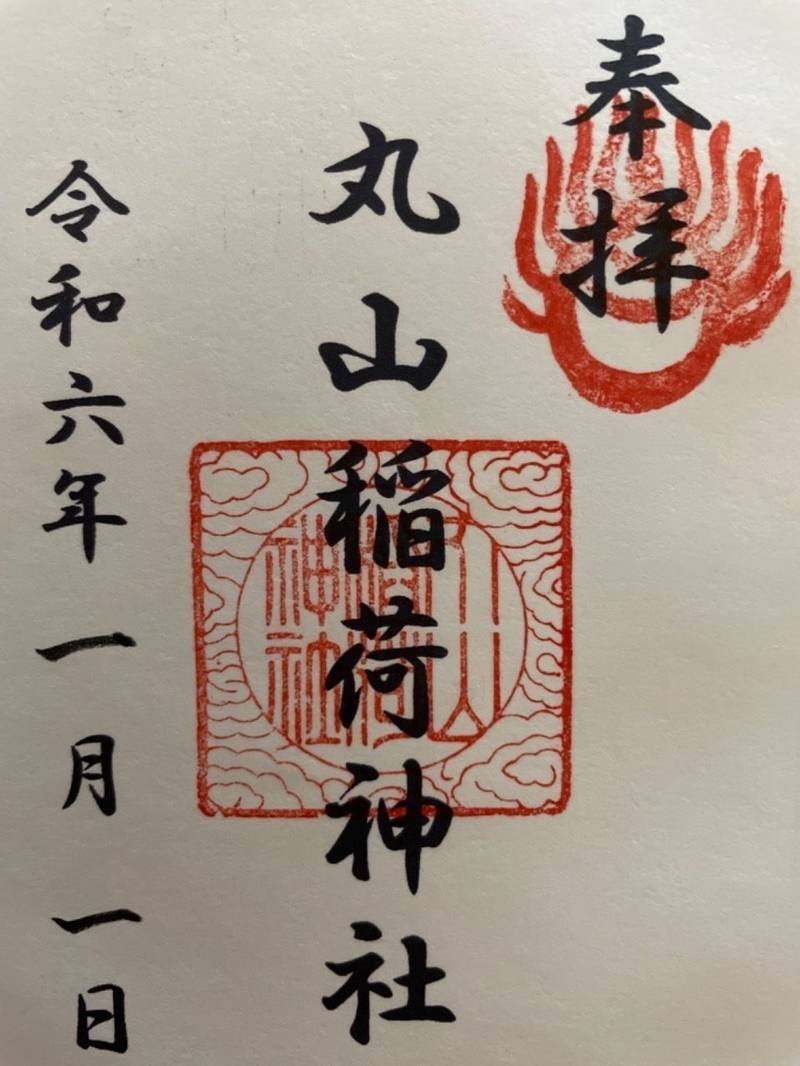 奉拝
丸山稲荷神社
丸山
稲荷
神社
令和六年一月一日